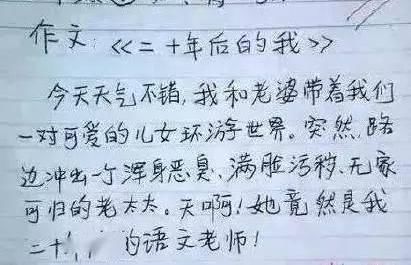 作文:《二十年后的我》
今天天气不错,我和老婆带着我们
一对可爱的儿女环游世界。突然,路
边冲出一个浑身恶臭、满脸污秽、无家
可归的老太太。天啊!她竟然是我
二十 的语文老师!